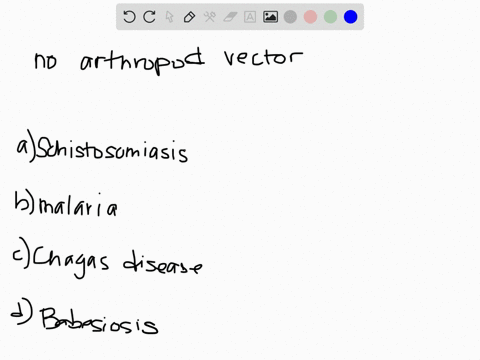 no arthropod vector
a) Schistosomiasis
b) malaria
c) Chagas disease
d) Babasiosis